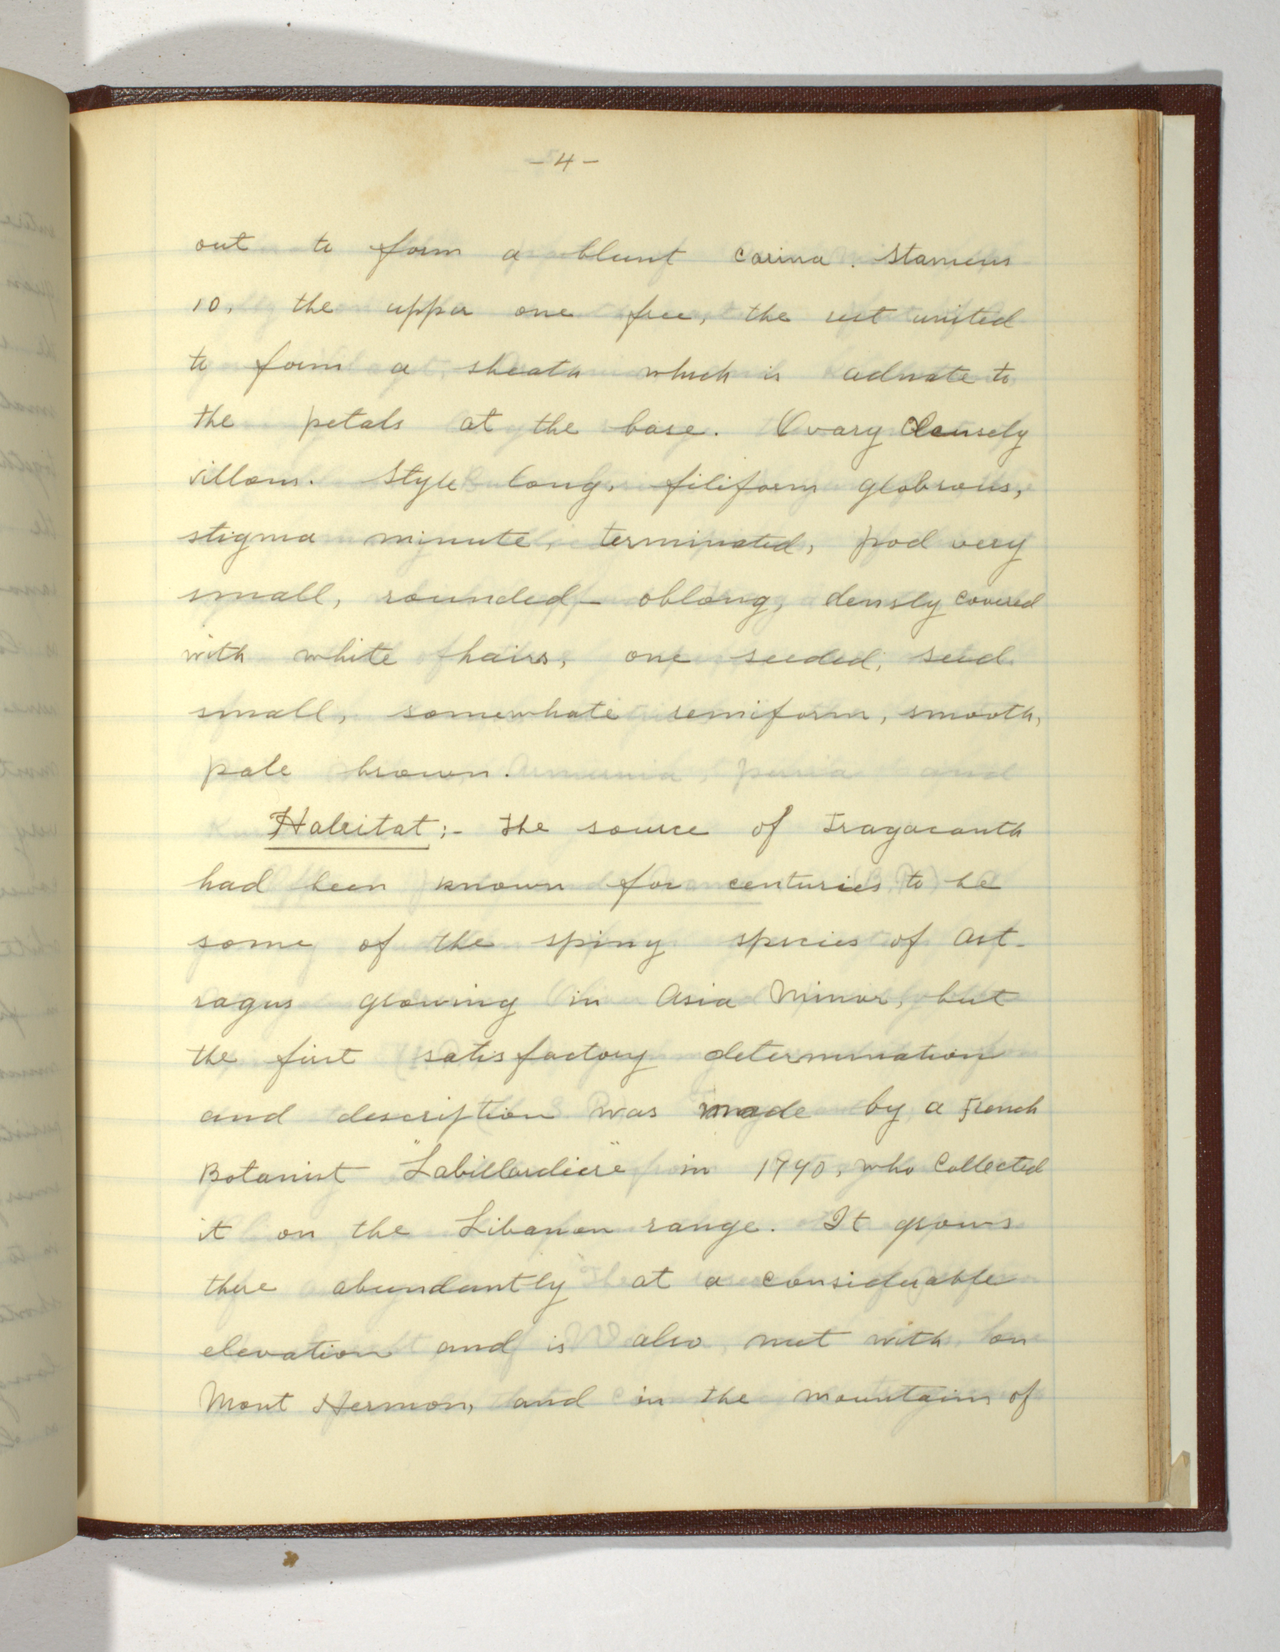 - 4 -
out to form a blunt carina. Stamens
10, the upper one free, the rest united
to form a sheath which is adnate to
the petals at the base. Ovary densely
villous. Style long, filiform glabrous,
stigma minute, terminated, pod very
small, rounded - oblong, densly covered
with white hairs, one seeded, seed
small, somewhate reniform, smooth,
pale brown.
Habitat:- The source of Tragacanth
had been known for centuries to be
some of the spiny species of Ast-
ragus growing in Asia Minor, but
the first satisfactory determination
and description was made by a French
Botanist "Labillardiere" in 1790, who collected
it on the Libanon range. It grows
there abundantly at a considerable
elevation and is also met with on
Mont Hermon, and in the mountains of